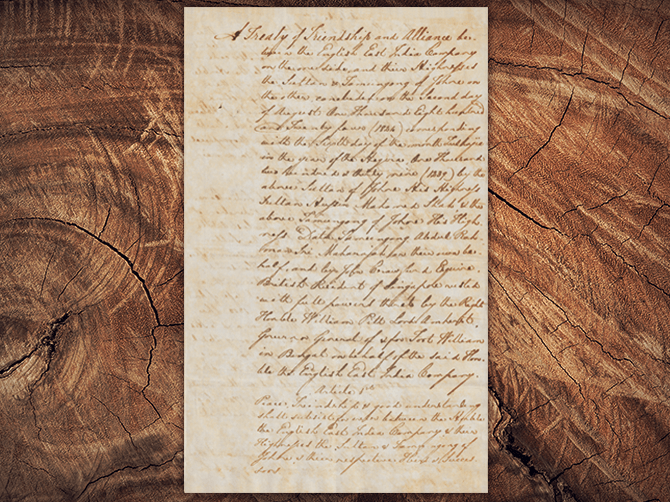 A Treaty of Friendship and Alliance be-
tween the English East India Company
on the one side, and their Highnesses
the Sultan & Tumongong of Johore on
the other concluded on the Second day
of August One Thousand Eight hundred
and Twenty four (1824) corresponding
with the Sixth day of the month
in the year of the Hegira One Thousand
two hundred & thirty nine (1239) by the
above Sultan of Johore His Highness
Sultan Hussin Mahomed Shah & the
above Tumongong of Johore His High-
ness Datu Tumongong Abdul Rah-
man Sri Maharajah on their own be-
half, and by John Crawfurd Esquire
British Resident of Singapore vested
with full powers by the Right
Honble William Pitt Lord Amherst,
Governor General of & for Fort William
in Bengal on behalf of the said Hono-
ble the English East India Company
Article 1st
Peace, Friendship & good understanding
shall subsist for ever between the Honble
the English East India Company & their
Highnesses the Sultan & Tumongong of
Johore & their respective Heirs & Succes-
sors